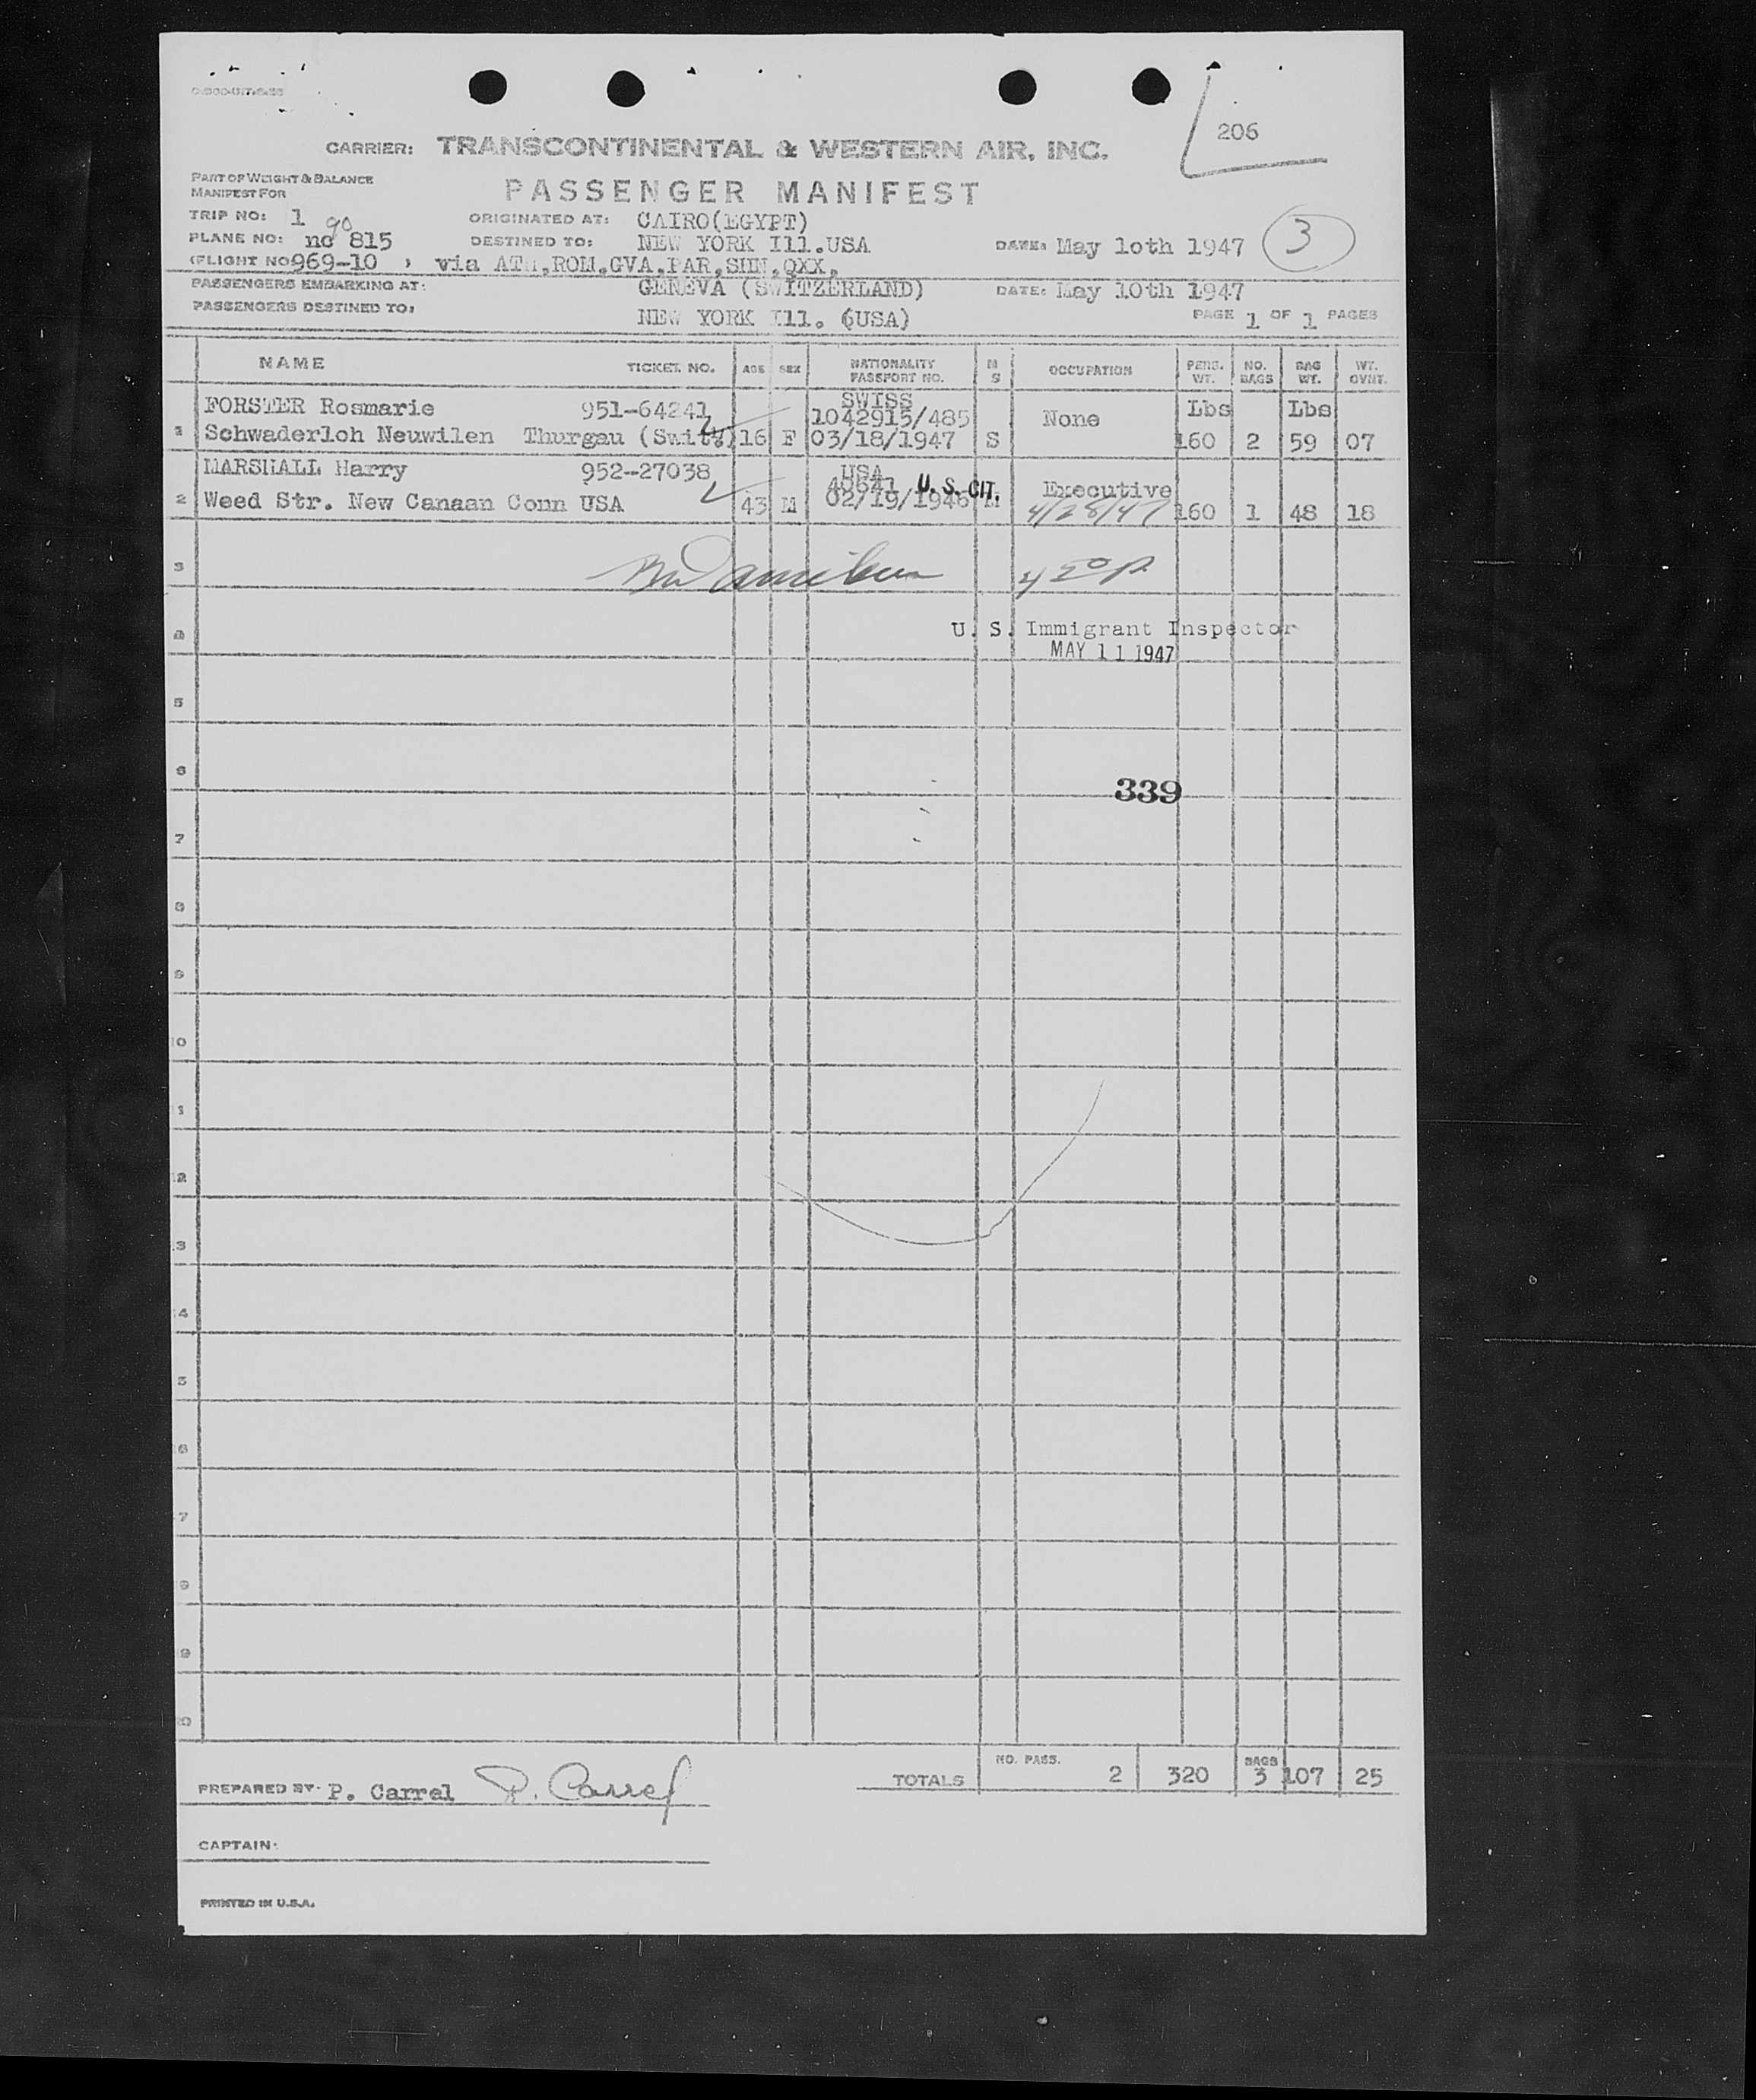 206
CARRIER: TRANSCONTINENTAL & WESTERN AIR, INC.
PART OF WEIGHT & BALANCE
MANIFEST FOR
PASSENGER MANIFEST
TRIP NO: 1 ORIGINATED AT: CAIRO(EGYPT)
PLANE NO: nc 815 DESTINED TO: NEW YORK Ill.USA DATE: May 1oth 1947 3
(FLIGHT NO 969-10 , via ATH,ROM,GVA,PAR,SNN,QXX,
PASSENGERS EMBARKING AT: GENEVA (SWITZERLAND) DATE: May 10th 1947
PASSENGERS DESTINED TO: NEW YORK Ill. (USA) PAGE 1 OF 1 PAGES
NAME TICKET. NO. AGE SEX NATIONALITY PASSPORT NO. M S OCCUPATION PERS. WT. NO. BAGS BAG WT. WT. OVHT.
FORSTER Rosmarie 951-64241 SWISS 1042915/485 None Lbs Lbs
1 Schwaderloh Neuwilen Thurgau (Switz) 16 F 03/18/1947 S 160 2 59 07
MARSHALL Harry 952-27038 USA 40641 U. S. CIT. Executive
2 Weed Str. New Canaan Conn USA 43 M 02/19/1946 M 4/28/47 160 1 48 18
3
4 U. S. Immigrant Inspector
MAY 11 1947
5
6
339
7
8
9
10
11
12
13
14
15
16
17
18
19
20
TOTALS NO. PASS. 2 320 BAGS 3 107 25
PREPARED BY: P. Carrel P. Carrel
CAPTAIN:
PRINTED IN U.S.A.